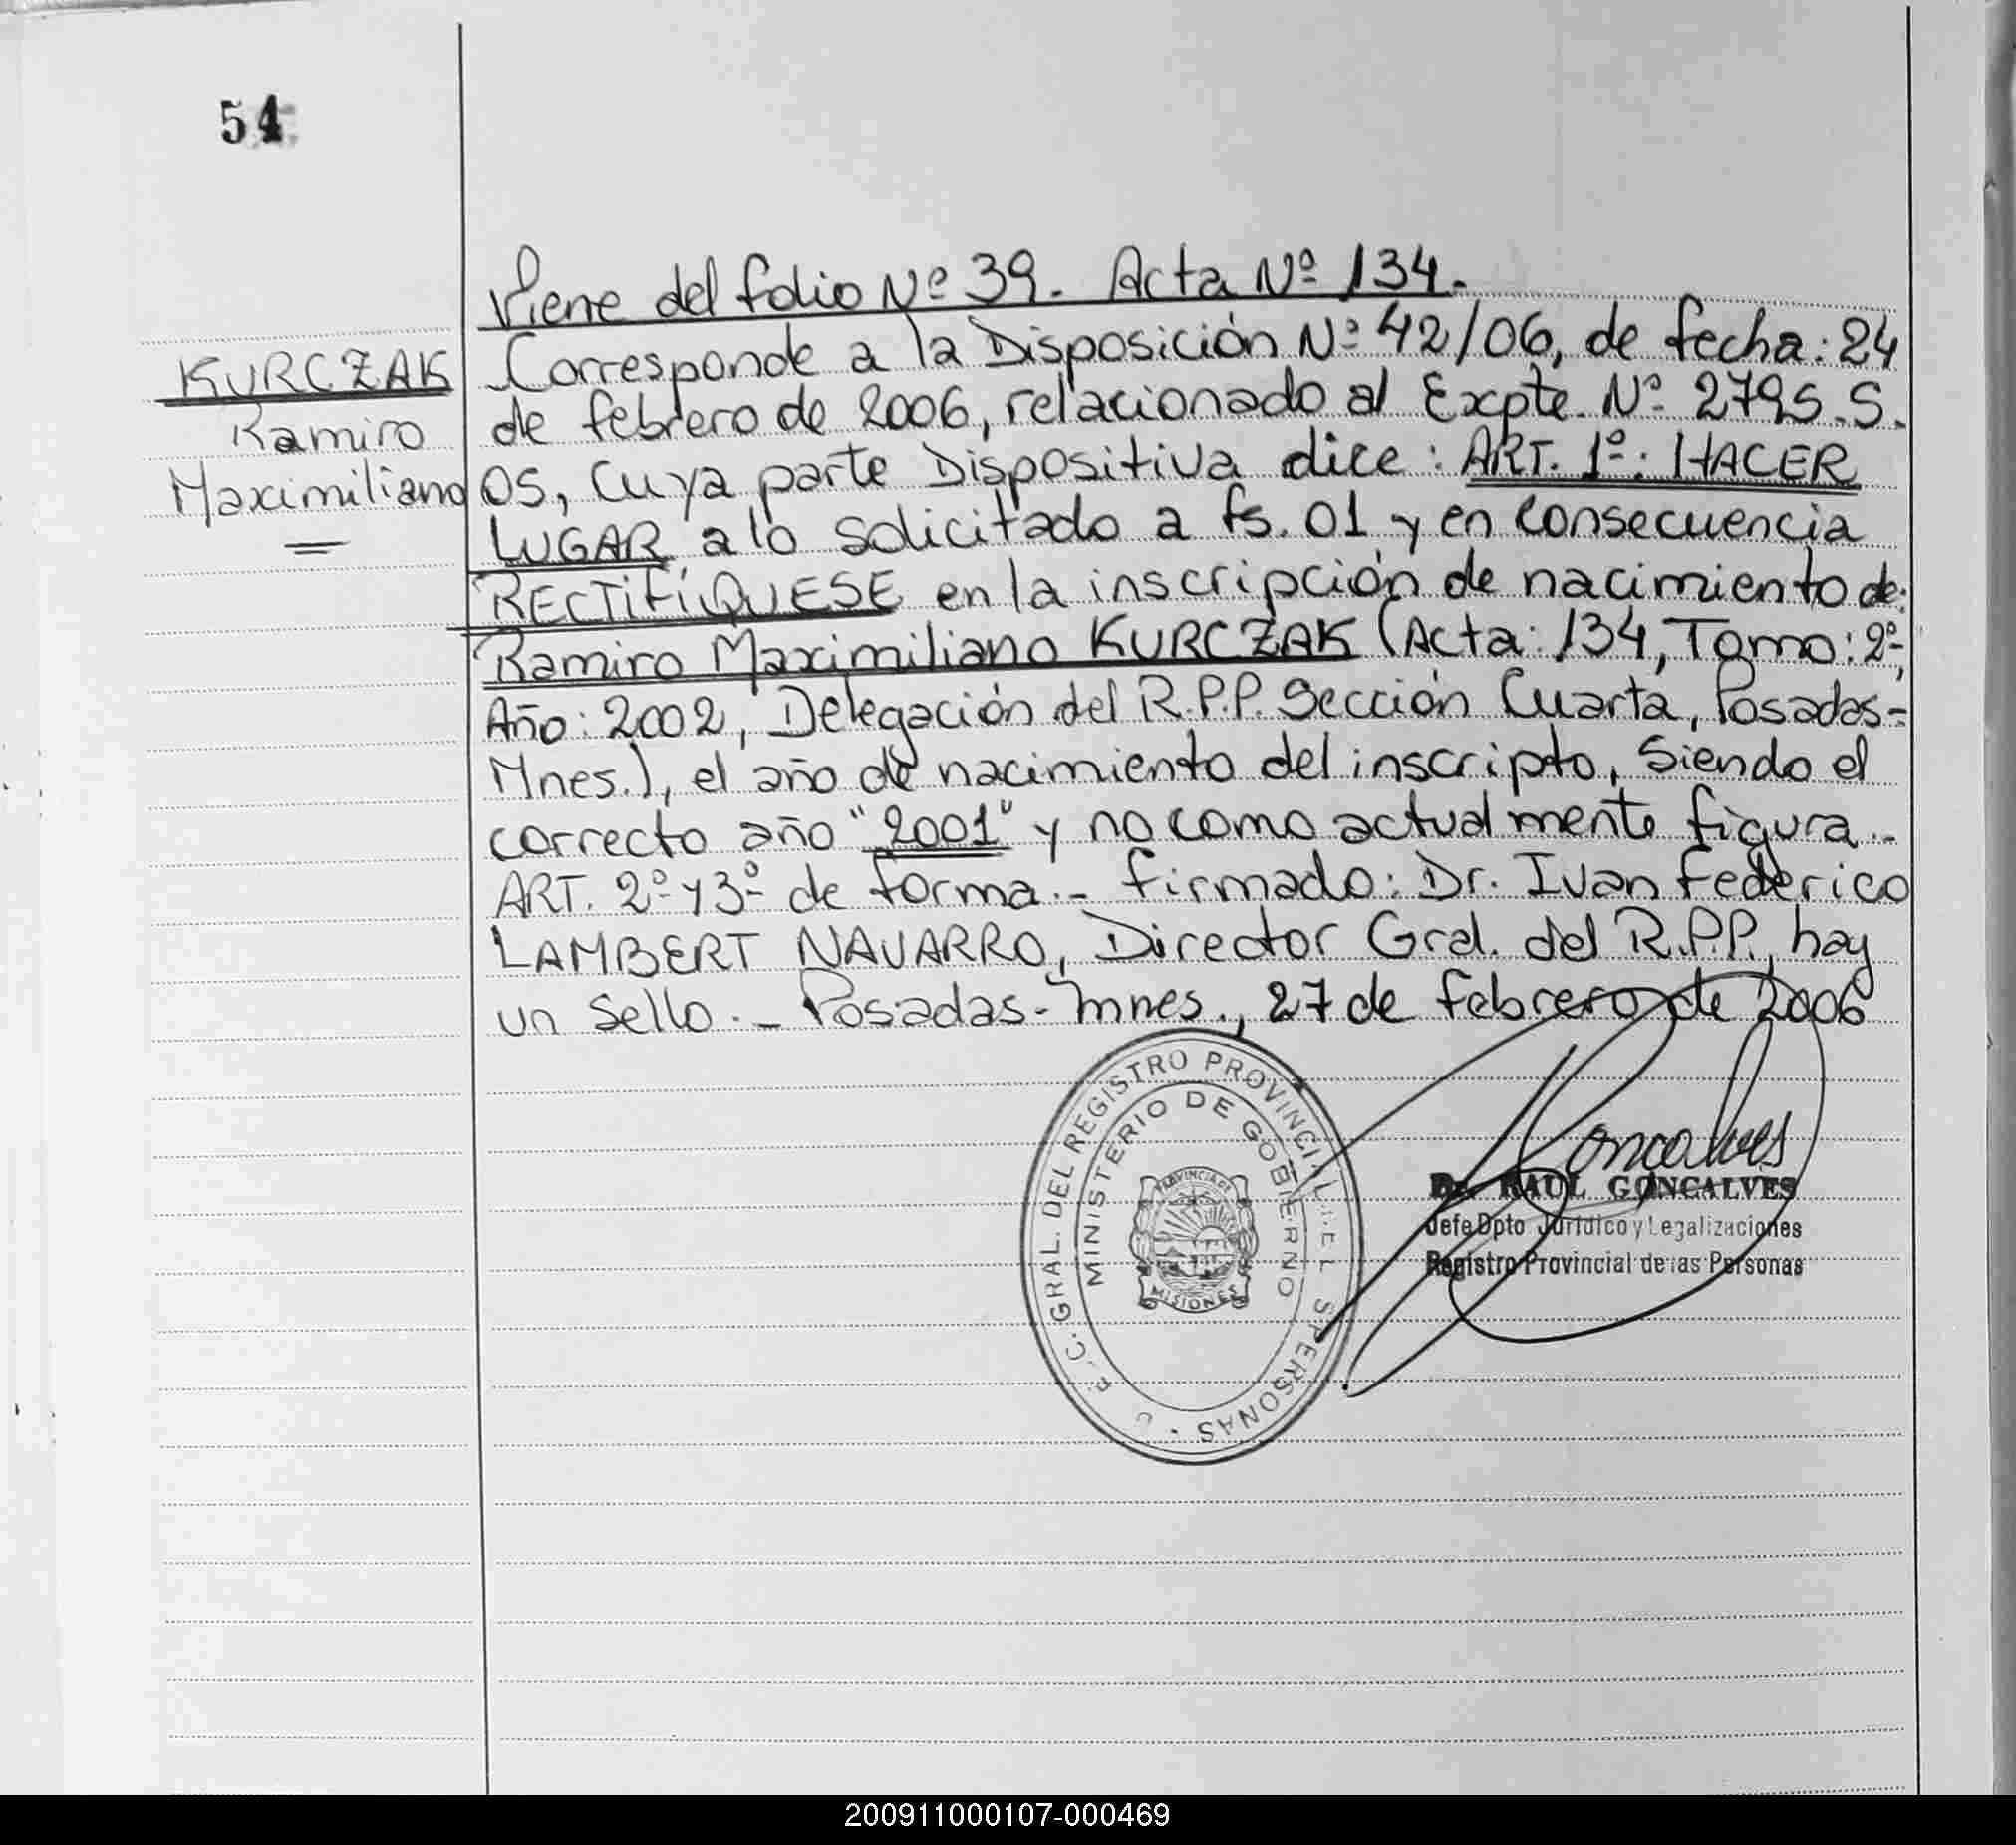 54
Viene del folio Nº 39. Acta Nº 134.-
KURCZAK
Ramiro
Maximiliano
Corresponde a la Disposición Nº 42/06, de fecha: 24
de febrero de 2006, relacionado al Expte. Nº 2795.S.
05, Cuya parte Dispositiva dice: ART. 1º: HACER
LUGAR a lo solicitado a fs. 01 y en consecuencia
RECTIFÍQUESE en la inscripción de nacimiento de:
Ramiro Maximiliano KURCZAK (Acta: 134, Tomo: 2º,
Año: 2002, Delegación del R.P.P. Sección Cuarta, Posadas-
Mnes.), el año de nacimiento del inscripto, Siendo el
correcto año "2001" y no como actualmente figura.-
ART. 2º y 3º de forma.- firmado: Dr. Ivan Federico
LAMBERT NAVARRO, Director Gral. del R.P.P., hay
un Sello.- Posadas-Mnes., 27 de febrero de 2006
GRAL. DEL REGISTRO PROVINCIAL DE L S PERSONAS
MINISTERIO DE GOBIERNO
PROVINCIA DE
MISIONES
Goncalves
Dr. RAUL GONCALVES
Jefe Dpto Jurídico y Legalizaciones
Registro Provincial de las Personas
200911000107-000469